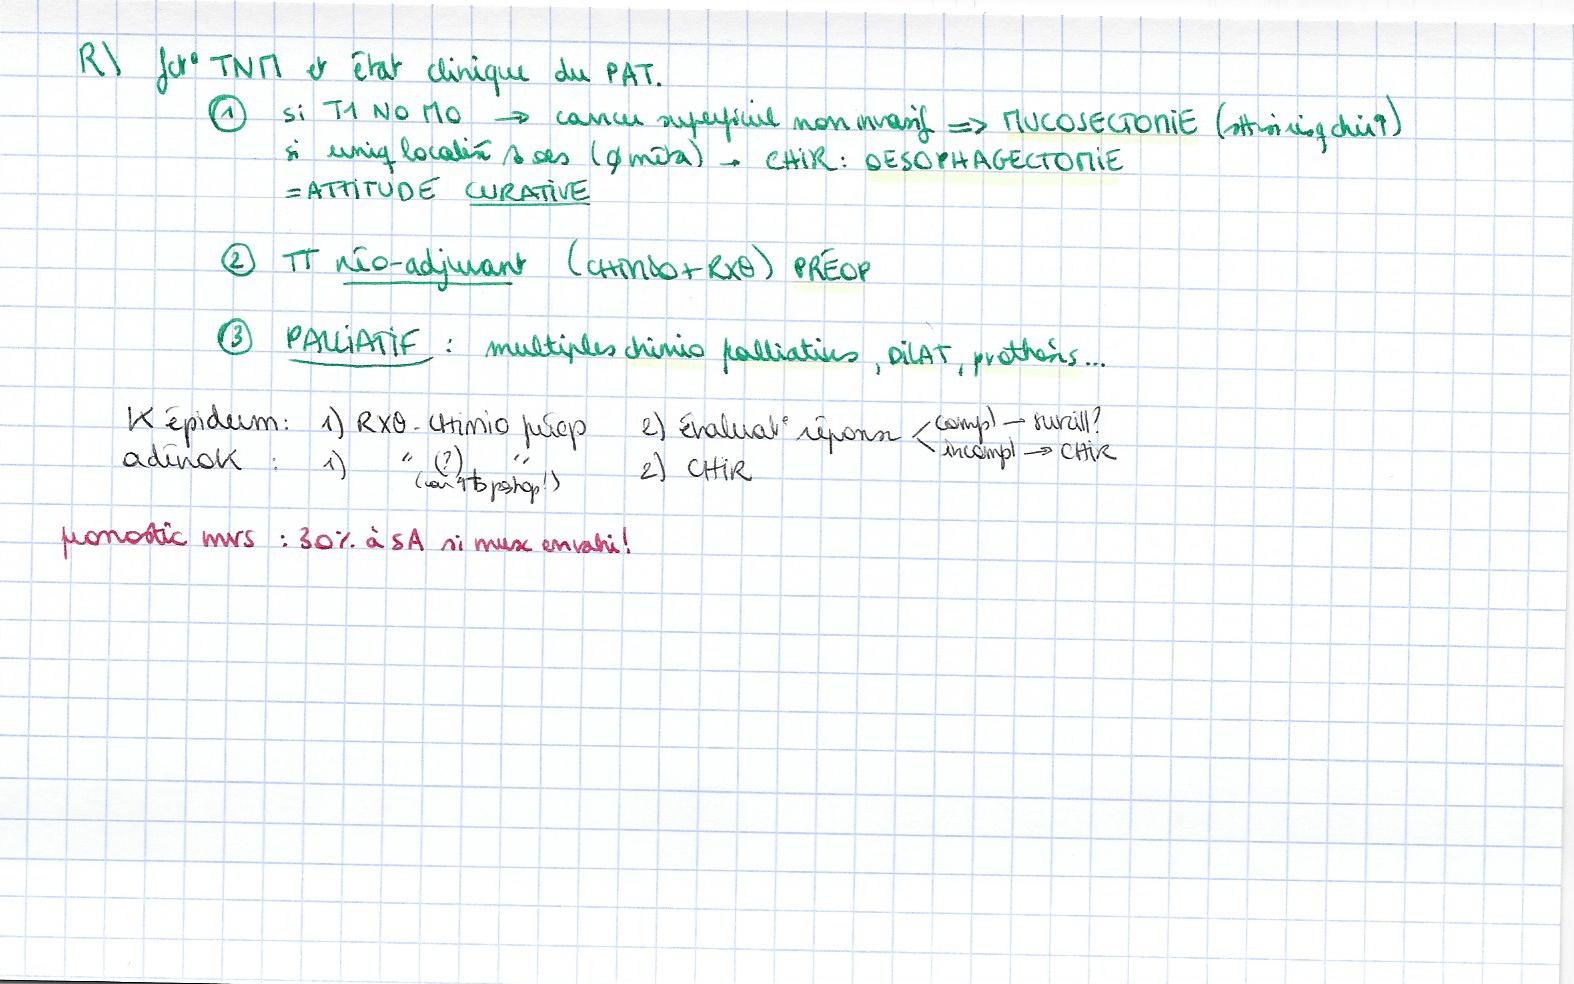 R) fct° TNM et État clinique du PAT.
① si T1 N0 M0 → cancer superficiel non invasif => MUCOSECTOMIE (si risq chir↑)
si uniq localisé ds oes (∅ méta) → CHIR: OESOPHAGECTOMIE
= ATTITUDE CURATIVE
② TT néo-adjuvant (CHIMIO + RXθ) PRÉOP
③ PALLIATIF : multiples chimio palliatives, DILAT, prothèses...
K épiderm: 1) RXθ-CHimio préop 2) Évaluat° réponse < compl → surveill?
incompl → CHIR
adénoK : 1) " (?) " 2) CHIR
pronostic mvs : 30% à 5A si mux envahi!